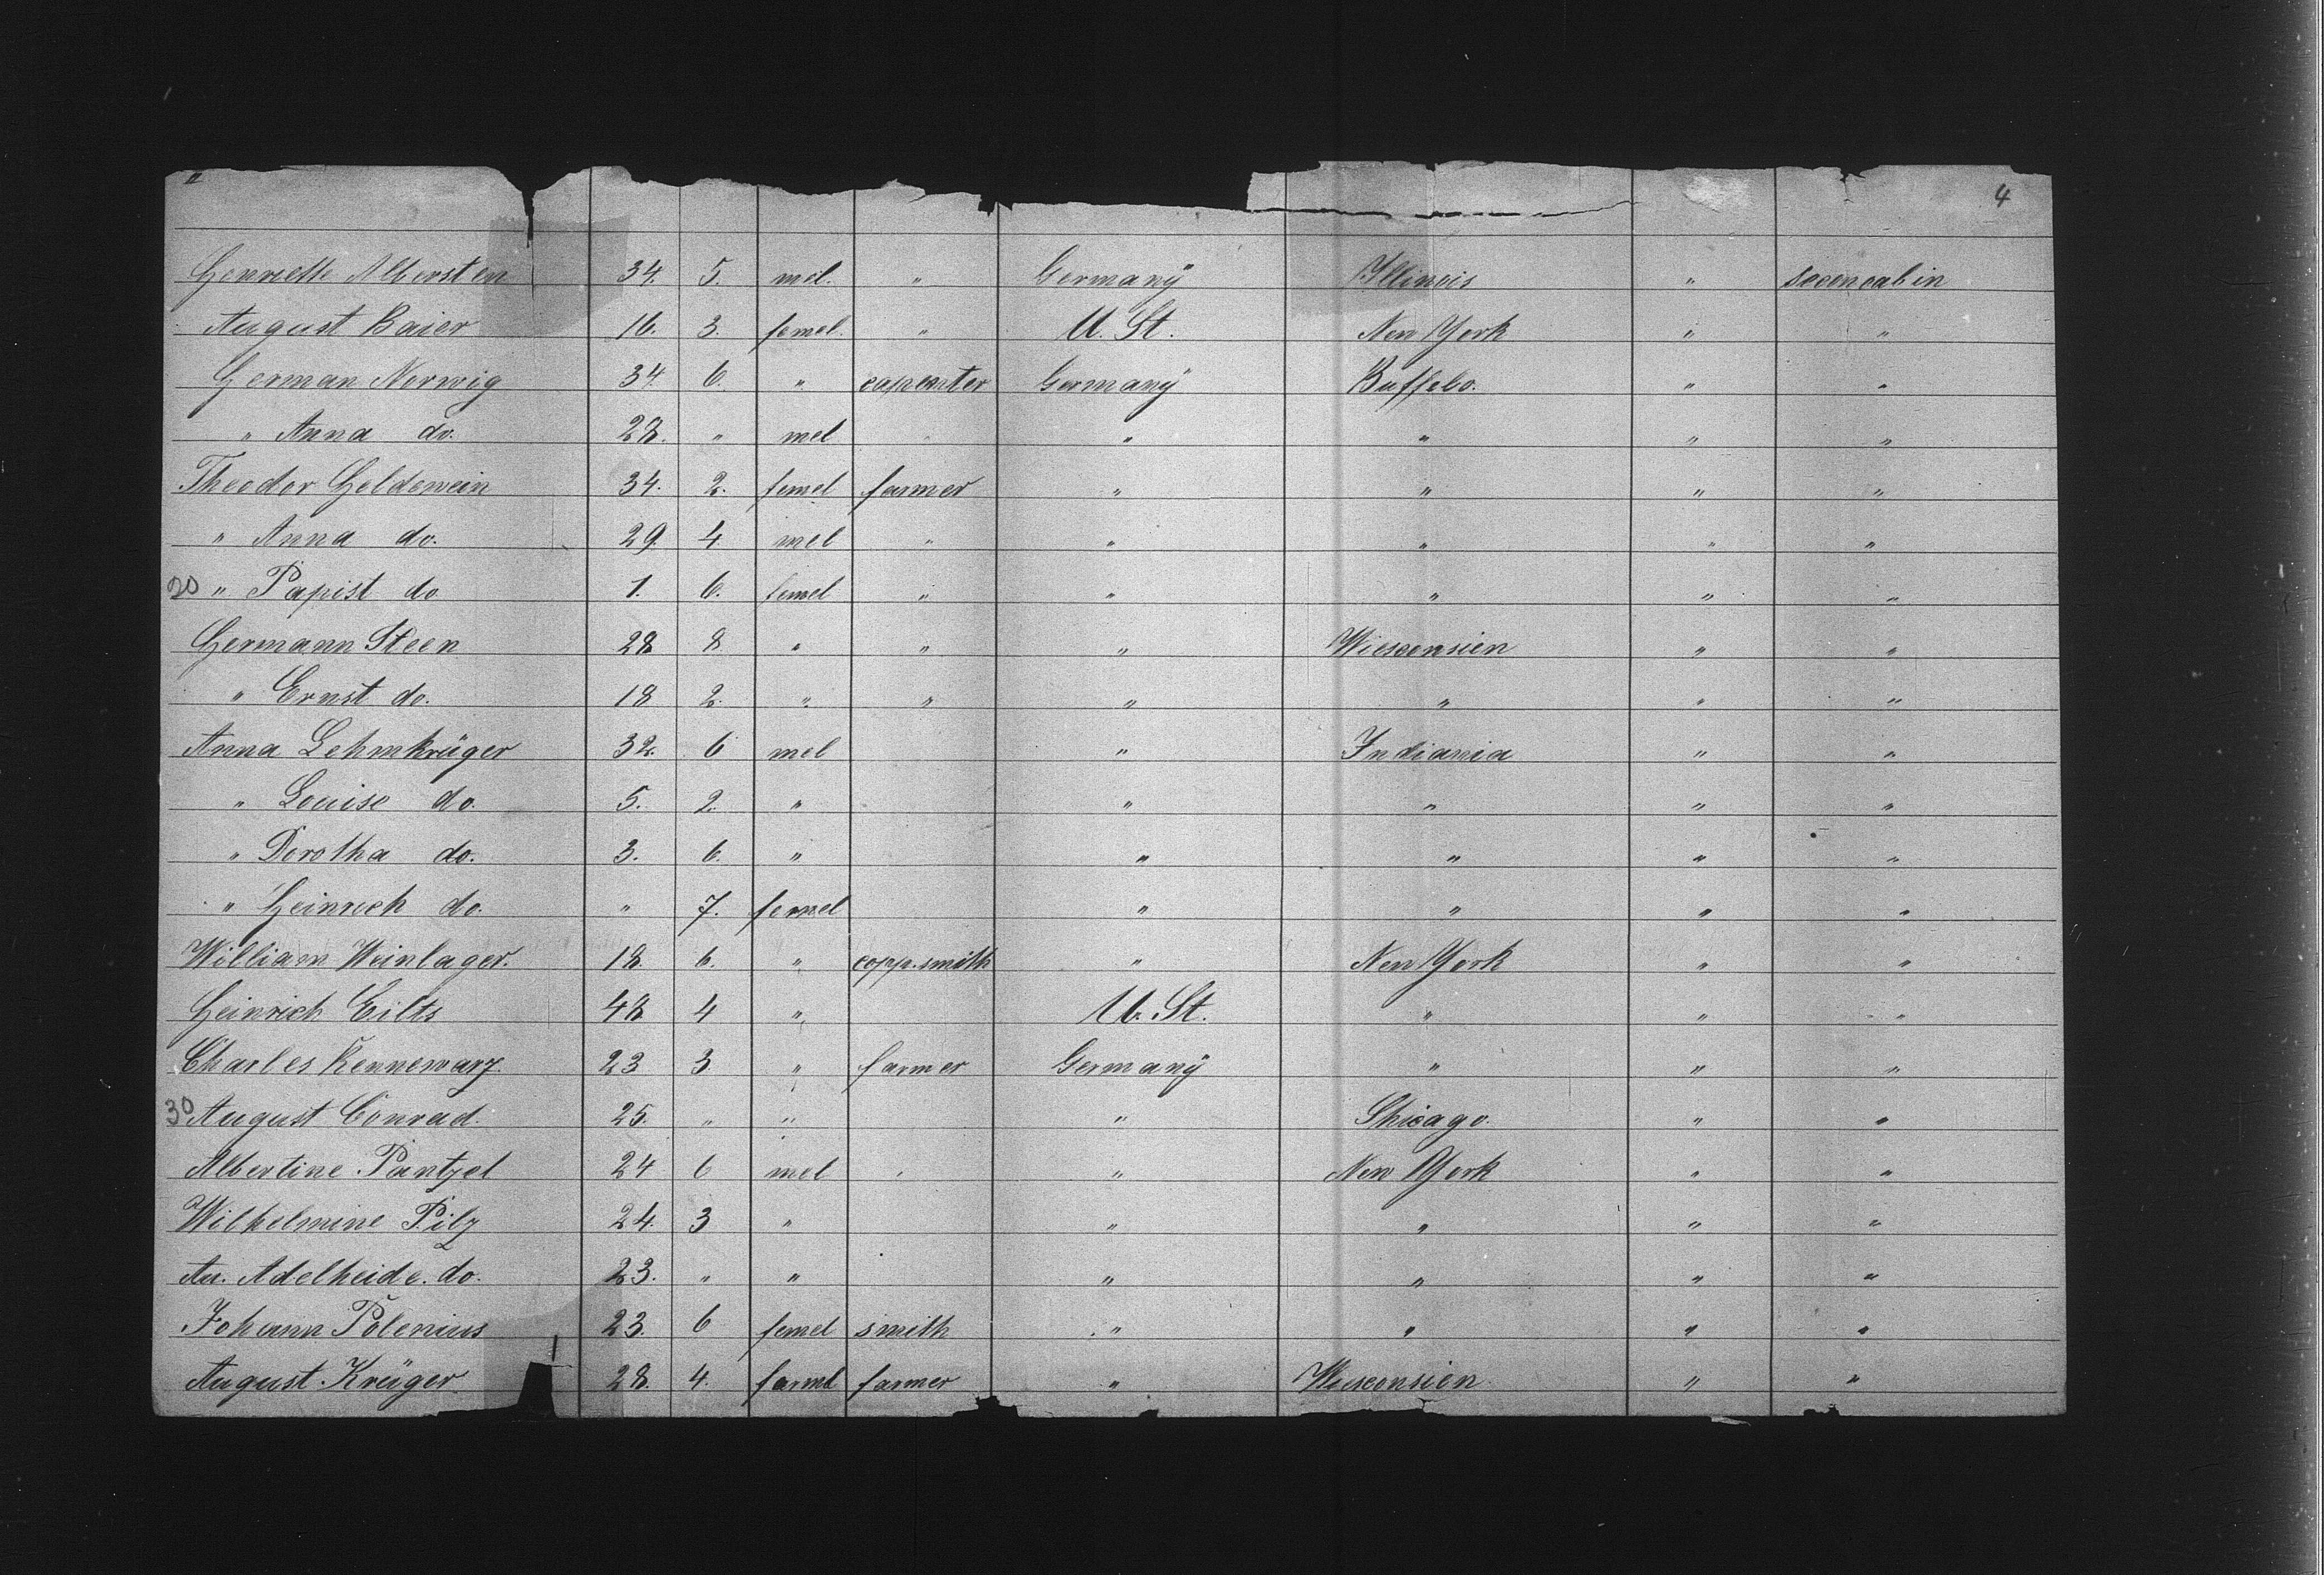 " 4
Henriette Albersten 34. 5. mel. " Germany Illinois " secencabin
August Baier 16. 3. femel. " U. St. New York " "
Herman Norwig 34. 6. " capenter Germany Buffelo. " "
" Anna do. 28. " mel " " " " "
Theodor Heldewein 34. 2. femel farmer " " " "
" Anna do. 29. 4. mel " " " " "
20 " Papist do 1. 6. femel " " " " "
Hermann Steen 28 8. " " " Wiesconsien " "
" Ernst do. 18 2. " " " " " "
Anna Lehmkrüger 32. 6 mel " Indiania " "
" Louise do. 5. 2. " " " " "
" Dorotha do. 3. 6. " " " " "
" Heinrich do. " 7. femel " " " "
William Weinlager. 18. 6. " copp.smith " New York " "
Heinrich Eilts 48 4 " U. St. " " "
Charles Rennewarz. 23 3 " farmer Germany " " "
30 August Conrad. 25. " " " Shicago. " "
Albertine Pantzel 24 6 mel " " New York " "
Wilhelmine Pilz 24. 3 " " " " "
Au. Adelheide. do. 23. " " " " " "
Johann Polenius 23. 6 femel smith " " " "
August Krüger 28. 4. farmel farmer " Wiesconsien. " "